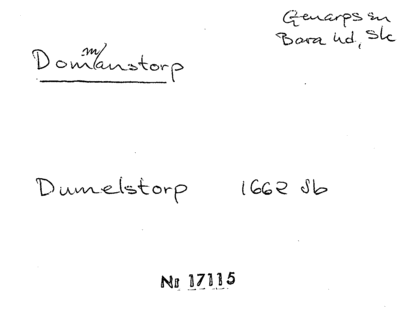 Genarps sn
Bara hd, Sk
Dommanstorp
Dumelstorp 1662 Jb
Nr 17115